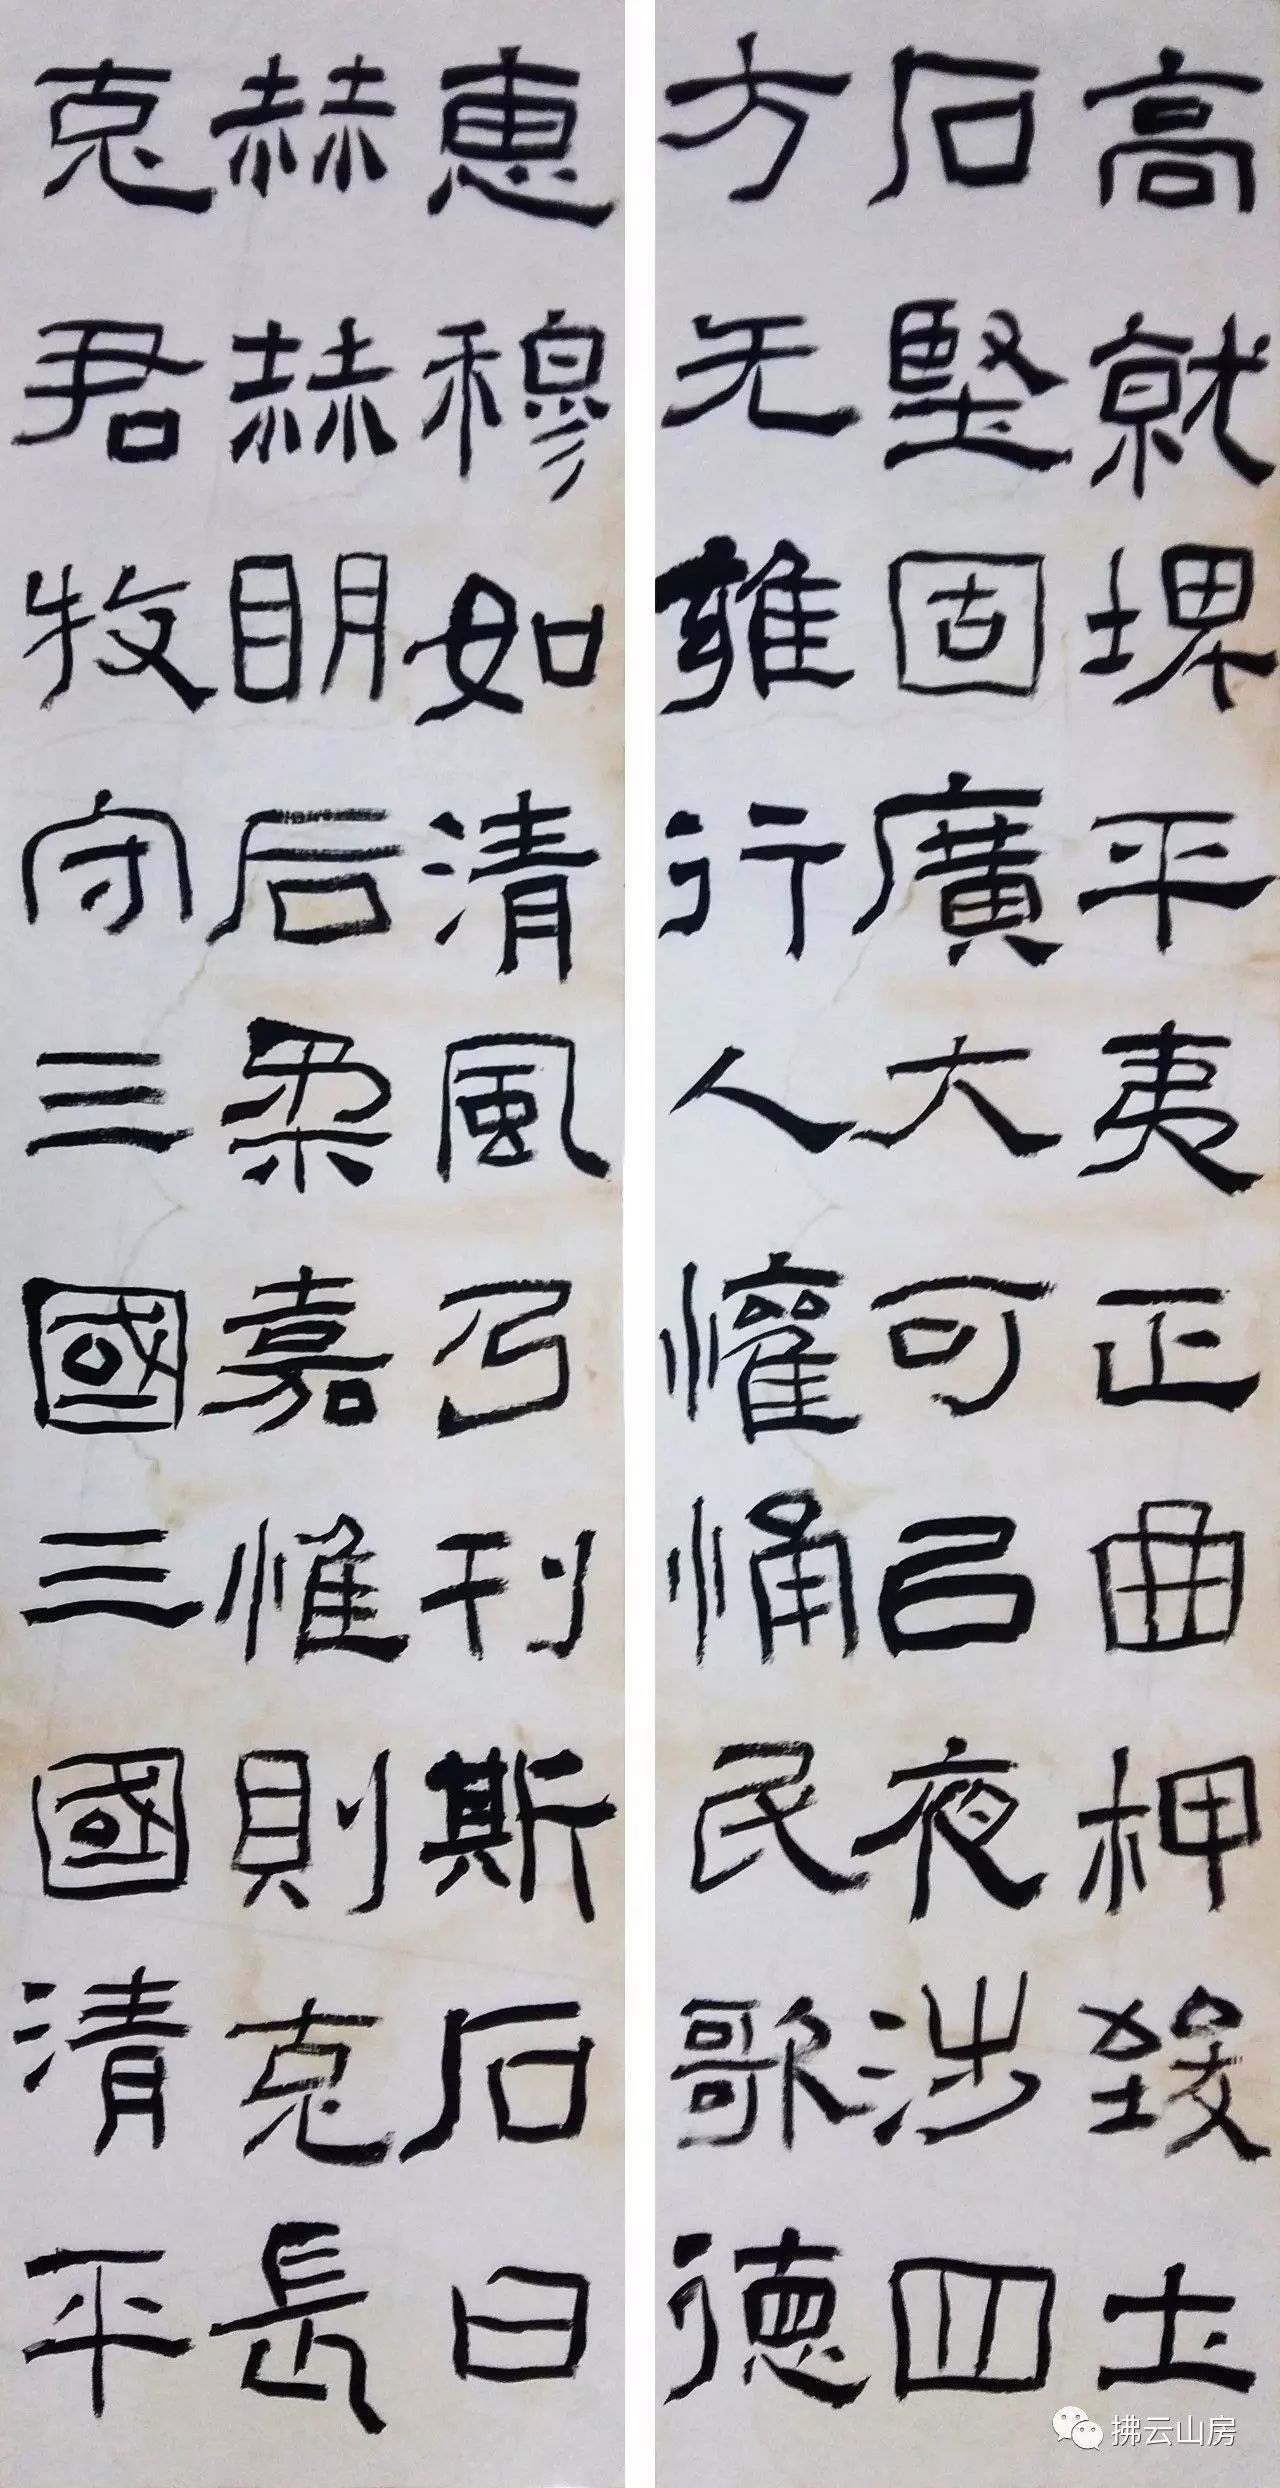 高就埤平夷正曲柙致土
石堅固廣大可以夜涉四
方无雍行人懽悀民歌德
惠穆如清風乃刊斯石曰
赫赫明后柔嘉惟則克長
克君牧守三國三國清平
拂云山房